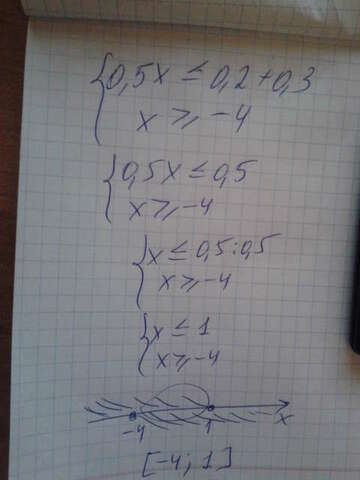 0,5x ≤ 0,2+0,3
x ⩾ -4
0,5x ≤ 0,5
x ⩾ -4
x ≤ 0,5:0,5
x ⩾ -4
x ≤ 1
x ⩾ -4
-4 1 x
[-4; 1]